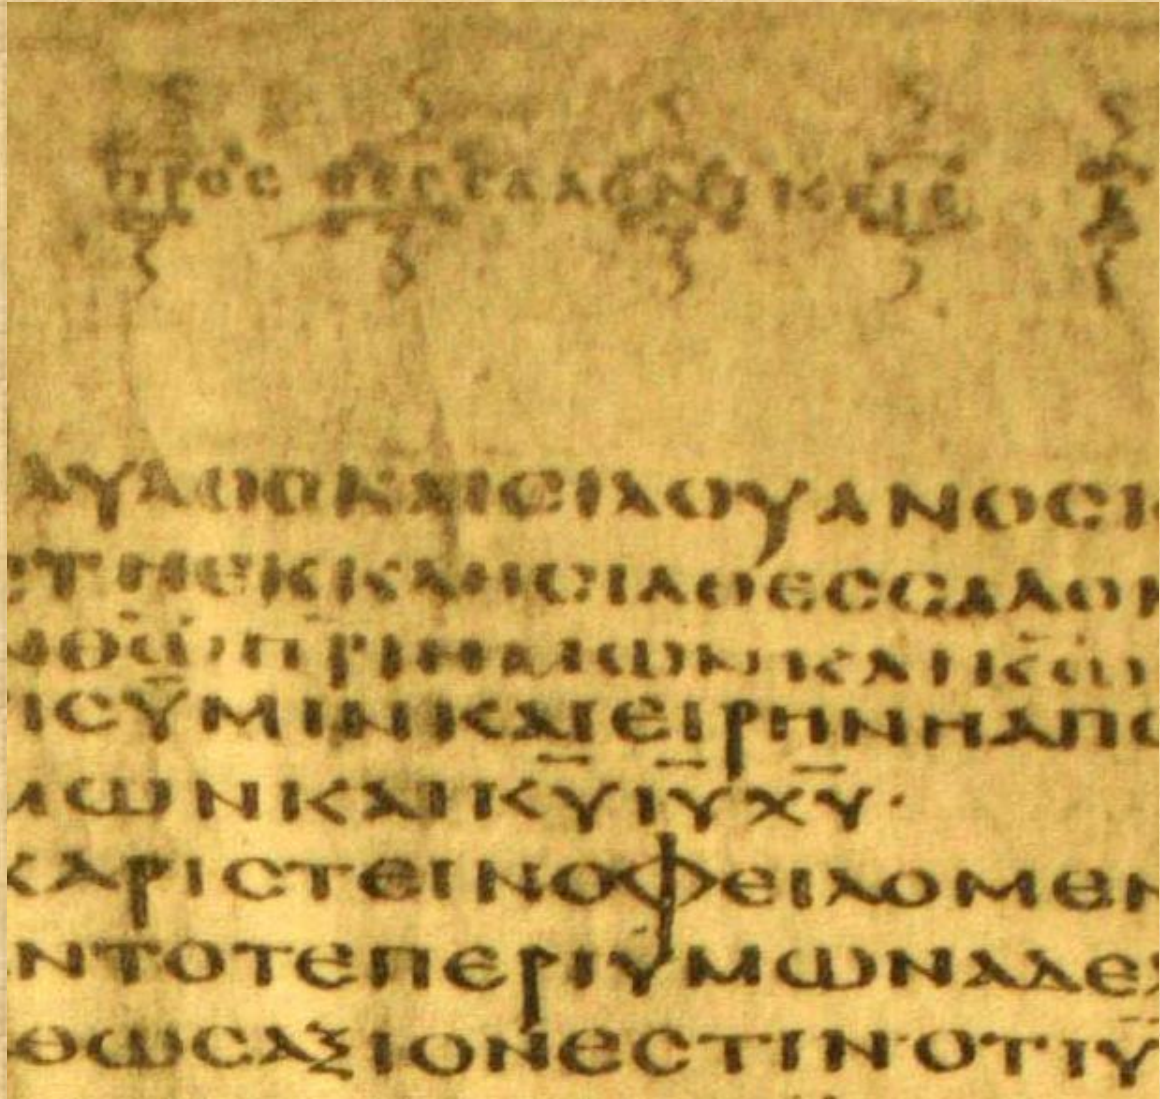 ΠΡΟC ΘΕCCΑΛΟΝΙΚΕΙC
ΑΥΛΟCΚΑΙCΙΛΟΥΑΝΟCΚ
ΤΗΕΚΚΛΗCΙΑΘΕCCΑΛΟΝ
ΝΘ̅Ω̅ΠΡΙΗΜΩΝΚΑΙΚ̅Ω̅
ΙCΫΜΙΝΚΑΙΕΙΡΗΝΗΑΠΟ
ΜΩΝΚΑΙΚ̅Υ̅Ι̅Υ̅Χ̅Υ̅·
ΧΑΡΙCΤΕΙΝΟΦΕΙΛΟΜΕΝ
ΝΤΟΤΕΠΕΡΙΫΜΩΝΑΔΕΛ
ΘΩCΑΞΙΟΝΕCΤΙΝ·ΟΤΙΥ